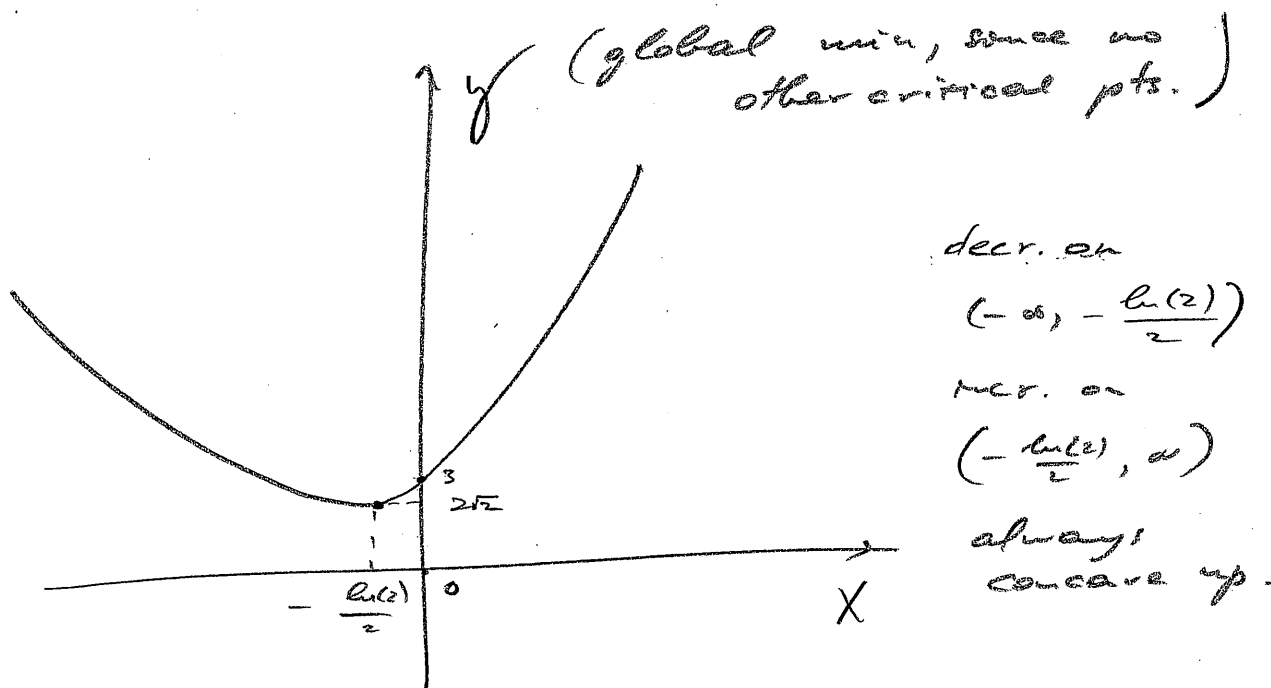 (global min, since no
other critical pts.)
y
decr. on
(-∞, - ln(2)/2)
incr. on
(- ln(2)/2, ∞)
always
concave up.
3
2√2
- ln(2)/2
0
X